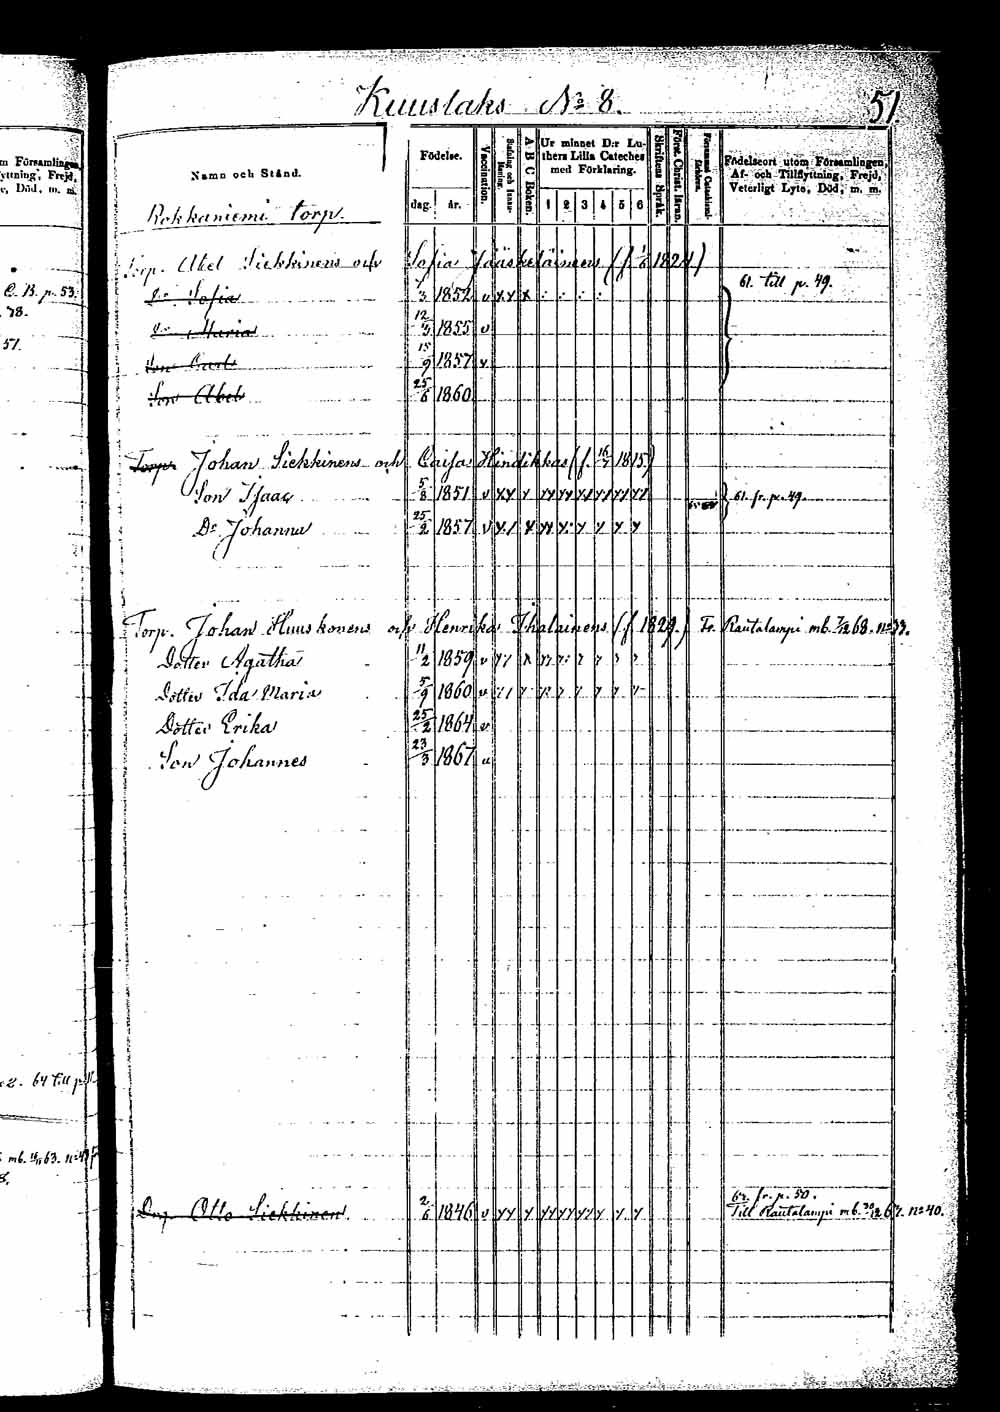 Kuuslaks No 8.
51.
Namn och Stånd.
Födelse.
dag. år.
Vaccination.
A B C Boken.
Ur minnet D:r Luthers Lilla Cateches med Förklaring.
1 2 3 4 5 6
Skriftens Språk.
Födelseort utom Församlingen,
Af- och Tillflyttning, Frejd,
Veterligt Lyte, Död, m. m.
Rokkaniemi torp.
Torp. Abel Siekkinens och Sofia Jääskeläinens (f. 1/6 1824)
Do Sofia 1852 v
61. till p. 49.
Do Maria 12/3 1855 v
Son Carl 15/9 1857 v
Son Abel 25/6 1860
Torp. Johan Siekkinens och Caisa Hindikkas (f. 16/7 1815)
Son Isaac 5/8 1851 v
61. fr. p. 49.
Dr Johanna 25/2 1857 v
Torp. Johan Huuskonens och Henrika Ihalainens (f. 1829.) Fr. Rautalampi mb. 7/12 68. no 33.
Dotter Agatha 11/2 1859 v
Dotter Ida Maria 5/9 1860 v
Dotter Erika 25/2 1864 v
Son Johannes 23/3 1867 v
Drg. Otto Siekkinen. 2/6 1846 v
fr. p. 50.
Till Rautalampi mb. 30/12 67. no 40.
m Församlingen,
yttning, Frejd,
e, Död, m. m.
C. B. p. 53.
78.
51.
64 till p.
mb. 63.